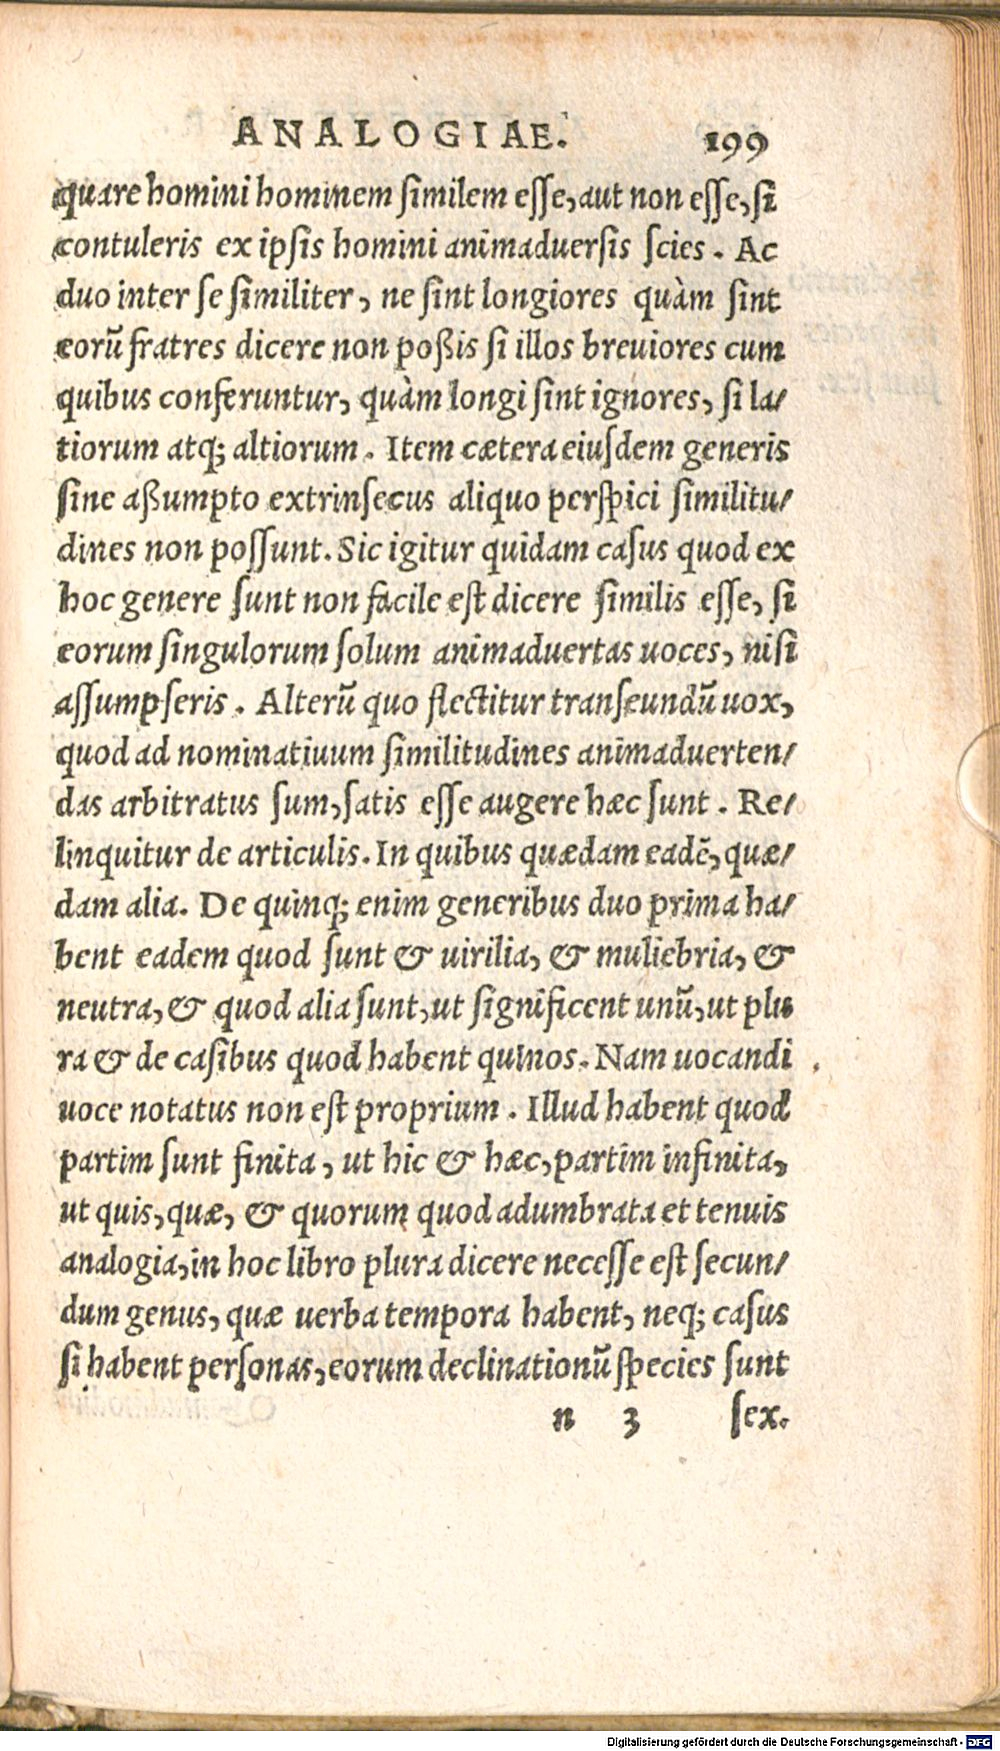 ANALOGIAE. 199
quare homini hominem ſimilem eſſe, aut non eſſe, ſi
contuleris ex ipſis homini animaduerſis ſcies. Ac
duo inter ſe ſimiliter, ne ſint longiores quàm ſint
eorũ fratres dicere non poßis ſi illos breuiores cum
quibus conferuntur, quàm longi ſint ignores, ſi la/
tiorum atq; altiorum. Item cætera eiuſdem generis
ſine aßumpto extrinſecus aliquo perſpici ſimilitu/
dines non poſſunt. Sic igitur quidam caſus quod ex
hoc genere ſunt non facile eſt dicere ſimilis eſſe, ſi
eorum ſingulorum ſolum animaduertas uoces, niſi
aſſumpſeris. Alterũ quo flectitur tranſeundũ uox,
quod ad nominatiuum ſimilitudines animaduerten/
das arbitratus ſum, ſatis eſſe augere hæc ſunt. Re/
linquitur de articulis. In quibus quædam eadẽ, quæ/
dam alia. De quinq; enim generibus duo prima ha/
bent eadem quod ſunt & uirilia, & muliebria, &
neutra, & quod alia ſunt, ut ſignificent unũ, ut plu
ra & de caſibus quod habent quinos. Nam uocandi
uoce notatus non eſt proprium. Illud habent quod
partim ſunt finita, ut hic & hæc, partim infinita,
ut quis, quæ, & quorum quod adumbrata et tenuis
analogia, in hoc libro plura dicere neceſſe eſt ſecun/
dum genus, quæ uerba tempora habent, neq; caſus
ſi habent perſonas, eorum declinationũ ſpecies ſunt
n 3 ſex.
Digitalisierung gefördert durch die Deutsche Forschungsgemeinschaft - DFG